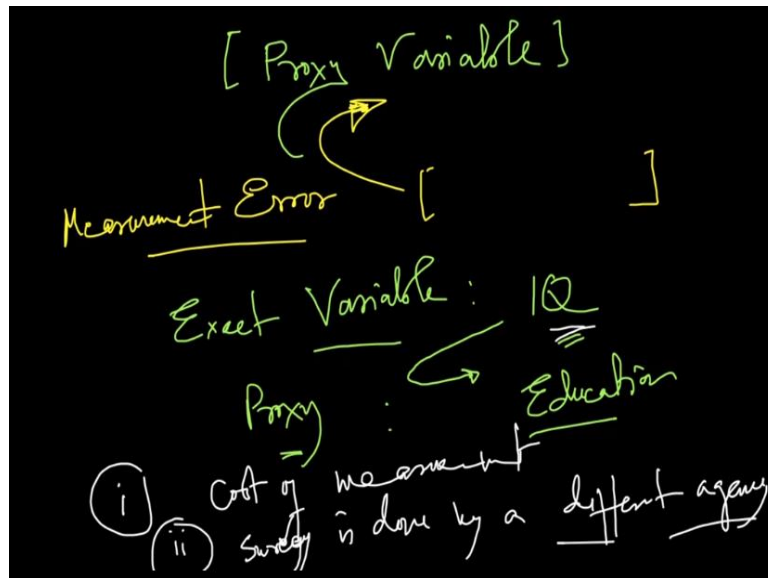 [ Proxy Variable ]
Measurement Error [ ]
Exact Variable : IQ
Proxy : Education
i Cost of measurement
ii Survey is done by a different agency